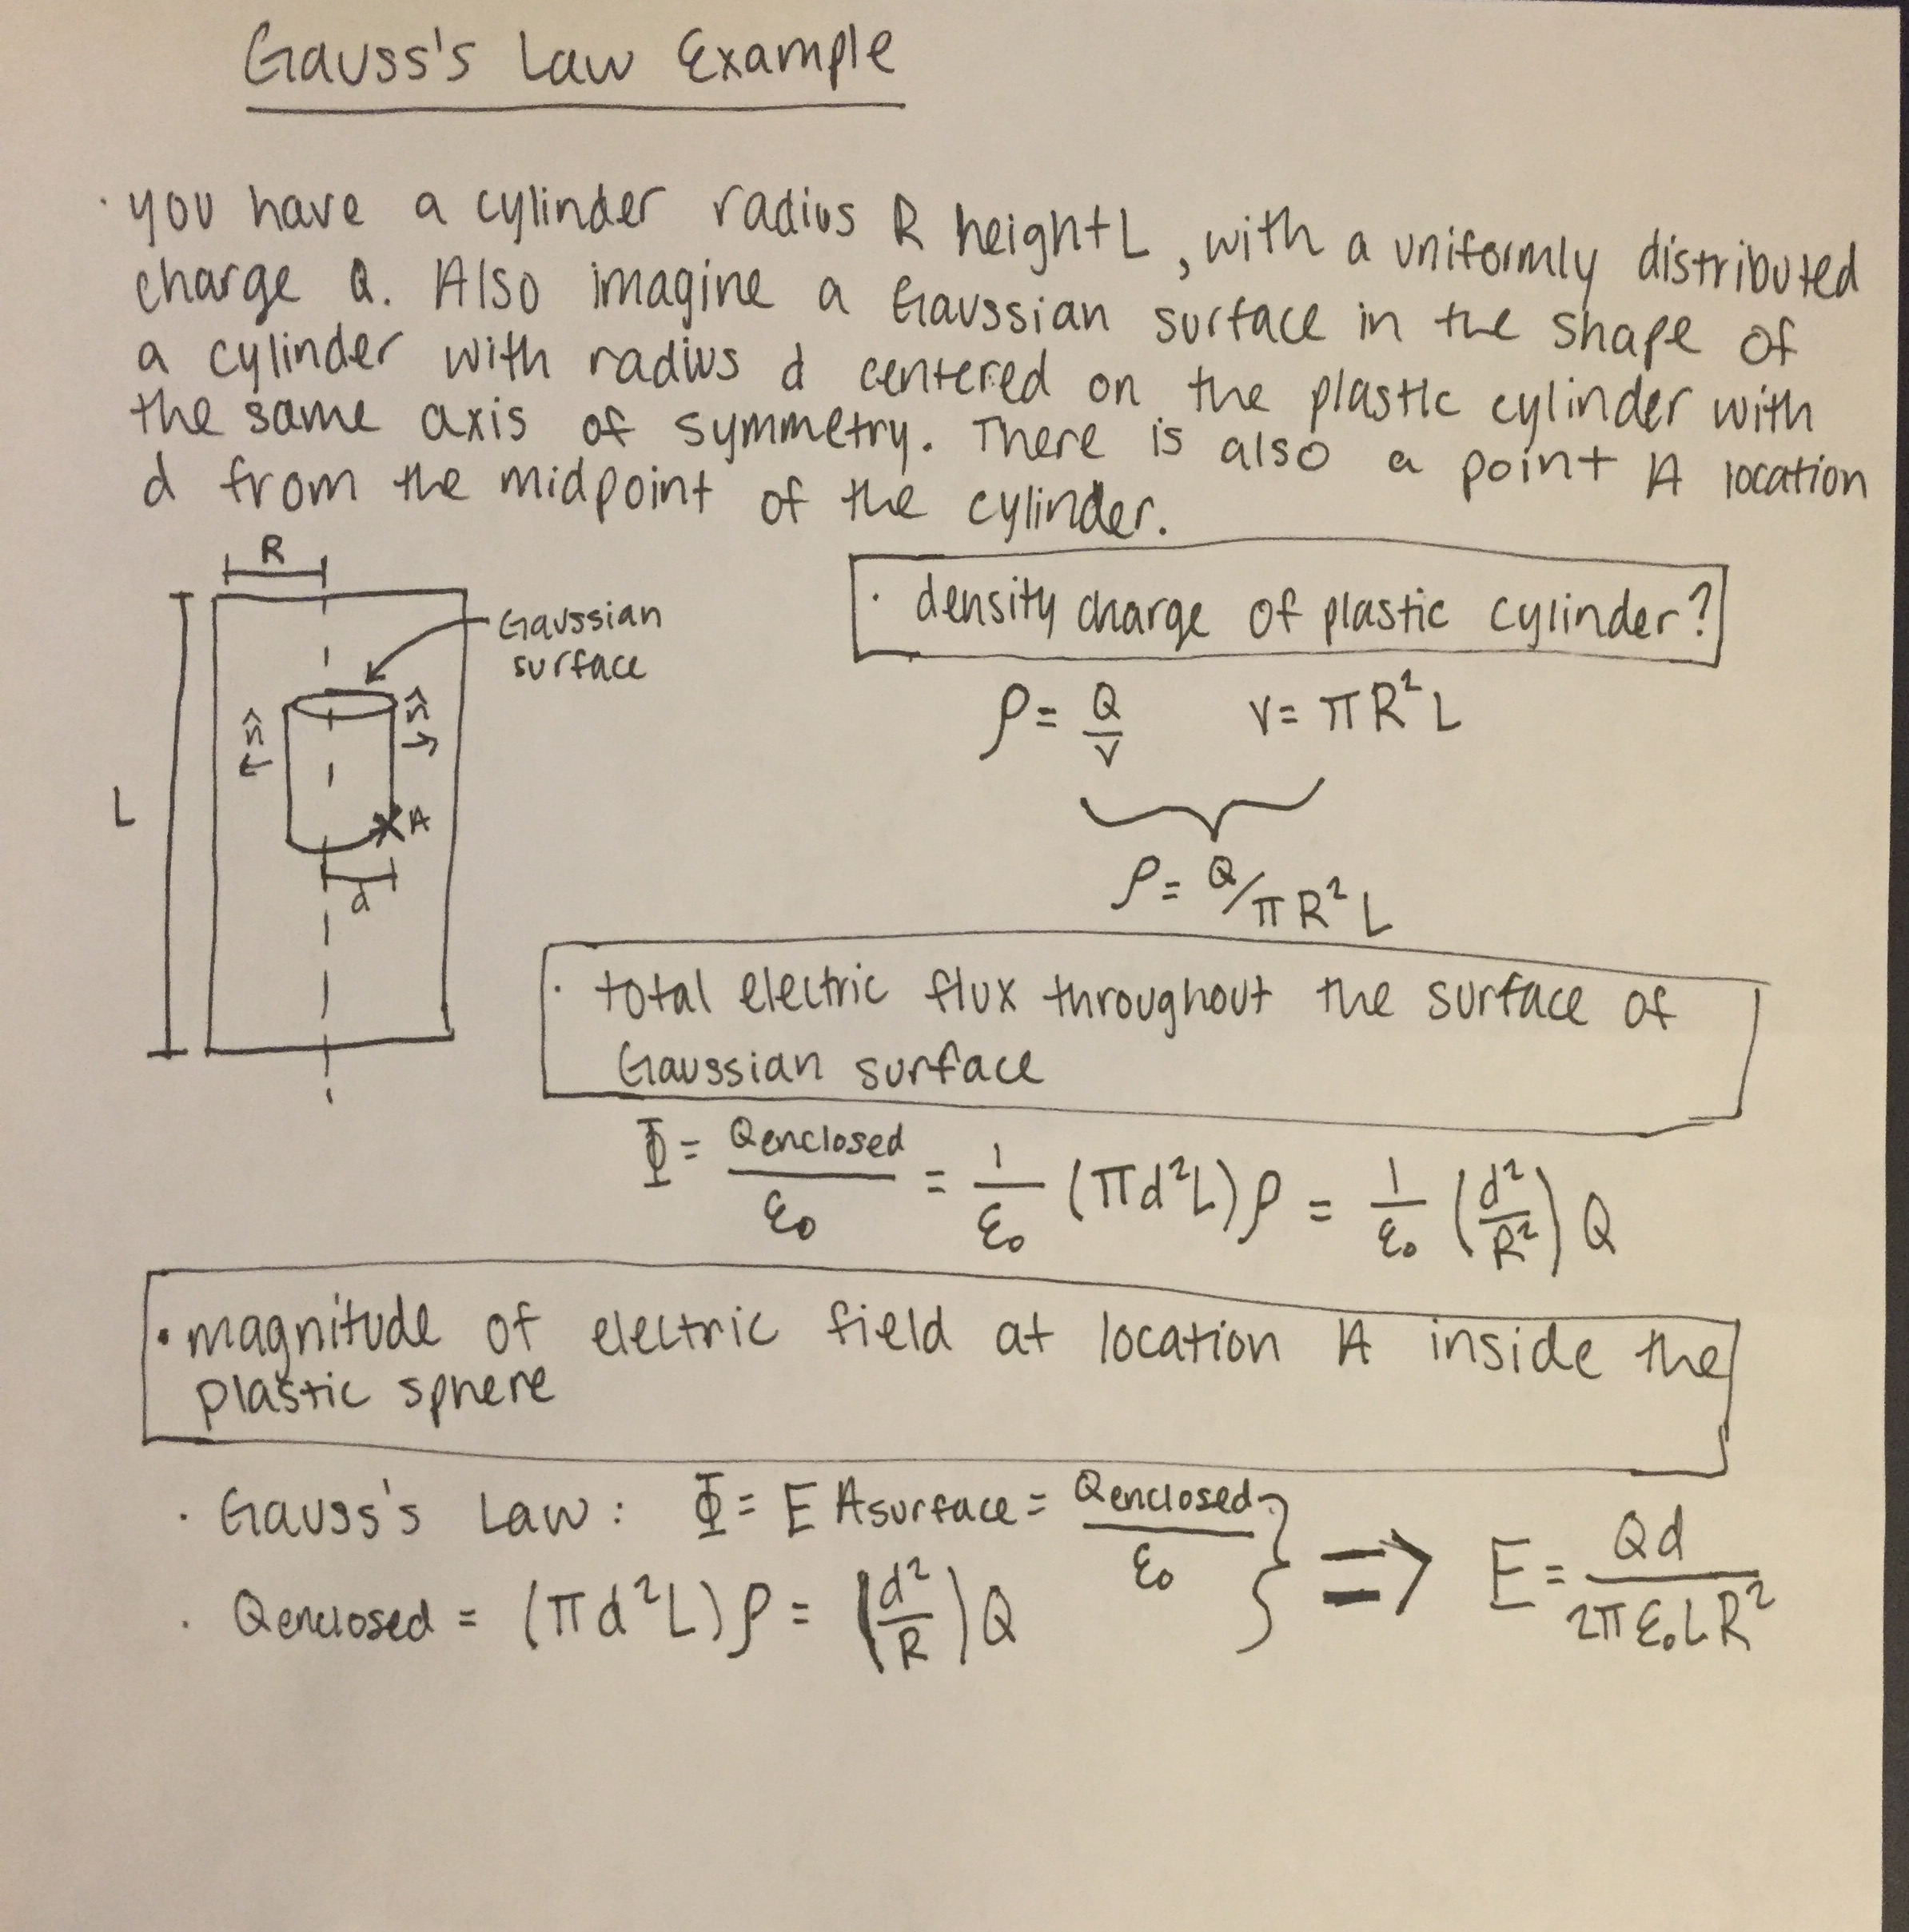 Gauss's Law Example
· you have a cylinder radius R height L, with a uniformly distributed
charge Q. Also imagine a Gaussian surface in the shape of
a cylinder with radius d centered on the plastic cylinder with
the same axis of symmetry. There is also a point A location
d from the midpoint of the cylinder.
R
Gaussian
surface
n̂
n̂
L
A
d
· density charge of plastic cylinder?
ρ = Q/V V = πR²L
ρ = Q/πR²L
· total electric flux throughout the surface of
Gaussian surface
Φ = Qenclosed/ε₀ = 1/ε₀ (πd²L)ρ = 1/ε₀ (d²/R²) Q
• magnitude of electric field at location A inside the
plastic sphere
· Gauss's Law: Φ = E Asurface = Qenclosed/ε₀
· Qenclosed = (πd²L)ρ = (d²/R)Q
} => E = Qd/2πε₀LR²